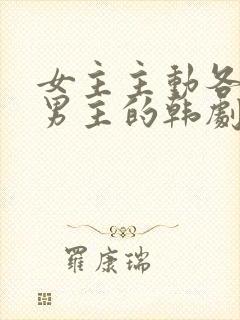 女主主動各
男主的韩劇
羅康瑞